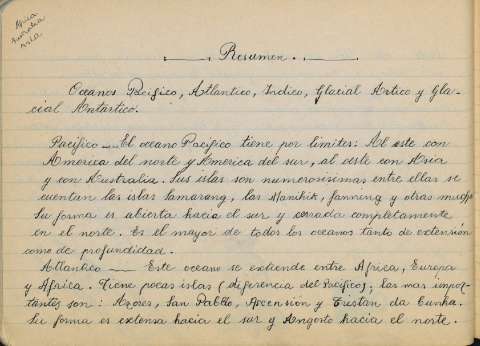 Africa
Australia
Asia.
Resumen.
Oceanos Pacifico, Atlantico, Indico, Glacial Artico y Gla-
cial Antartico.
Pacifico — El oceano Pacifico tiene por limites: Al este con
America del norte y America del sur, al oeste con Asia
y con Australia. Sus islas son numerosisimas entre ellas se
cuentan las islas Samarang, las Manihik, Fanning y otras muchas
Su forma es abierta hacia el sur y cerrada completamente
en el norte. Es el mayor de todos los oceanos tanto de extensión
como de profundidad.
Atlantico — Este oceano se extiende entre Africa, Europa
y Africa. Tiene pocas islas (diferencia del Pacifico); las mas impor-
tantes son: Açores, San Pablo, Ascensión y Tristan da Cunha.
Su forma es extensa hacia el sur y angosto hacia el norte.